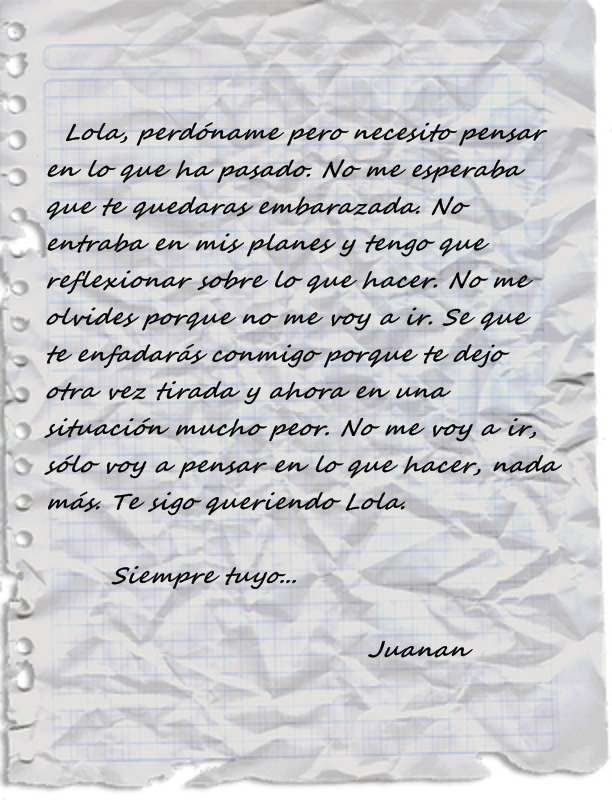 Lola, perdóname pero necesito pensar
en lo que ha pasado. No me esperaba
que te quedaras embarazada. No
entraba en mis planes y tengo que
reflexionar sobre lo que hacer. No me
olvides porque no me voy a ir. Se que
te enfadarás conmigo porque te dejo
otra vez tirada y ahora en una
situación mucho peor. No me voy a ir,
sólo voy a pensar en lo que hacer, nada
más. Te sigo queriendo Lola.
Siempre tuyo...
Juanan